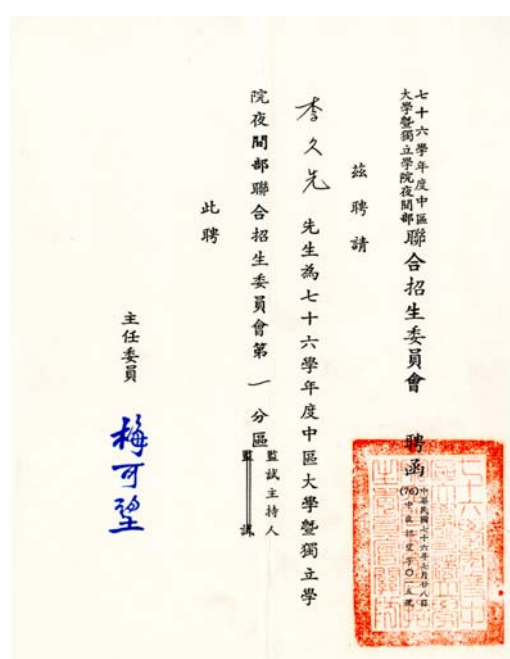 七十六學年度中區
大學暨獨立學院夜間部
聯合招生委員會 聘函
中華民國七十六年七月廿八日
(76)中夜招望字〇一五號
茲聘請
李久先 先生為七十六學年度中區大學暨獨立學
院夜間部聯合招生委員會第一分區
監試主持人
監 試
此聘
主任委員 梅可望